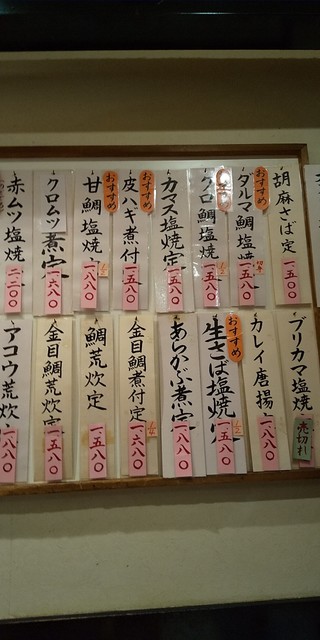 胡麻さば定
一五〇〇
おすすめ
ダルマ鯛塩焼
一五八〇
クロ鯛塩焼
一五八〇
カマス塩焼定
一五八〇
おすすめ
皮ハギ煮付
一五八〇
おすすめ
甘鯛塩焼
一八八〇
クロムツ煮定
一六八〇
赤ムツ塩焼
二二〇〇
ブリカマ塩焼
売切れ
カレイ唐揚
一八八〇
おすすめ
生さば塩焼
一五八〇
あらかぶ煮定
一八八〇
金目鯛煮付定
一六八〇
鯛荒炊定
一五八〇
金目鯛荒炊定
一五八〇
アコウ荒炊
一八八〇